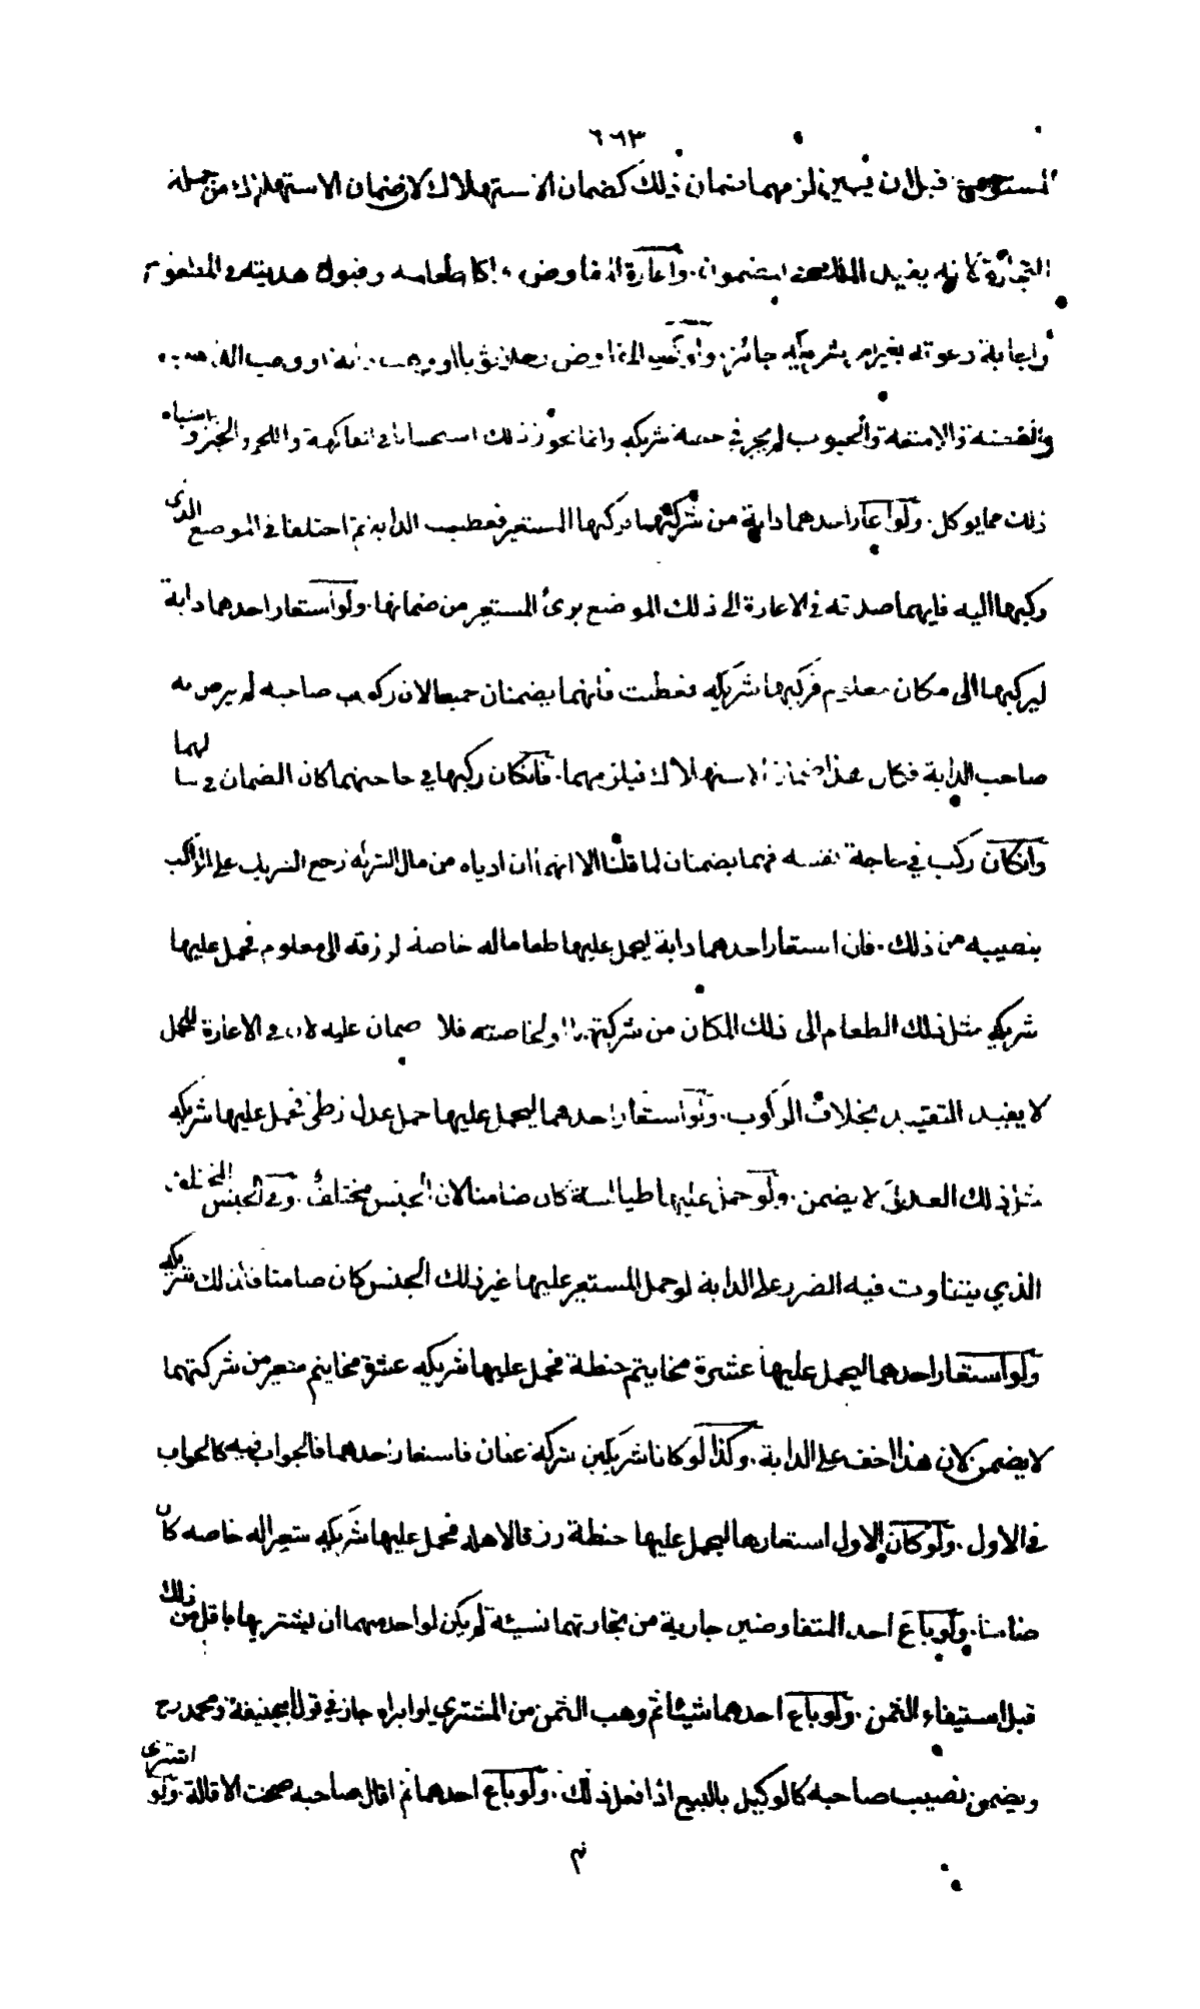 ٦٦٣
قبل ان يبين لزمهما ضمان ذلك كضمان الاستهلاك لان ضمان الاستهلاك من جملة
التجارة لانه يفيد الملك المضمون. واعارة المفاوض واكل طعامه وقبول هديته في المطعوم
واجابة دعوته بغير امر شريكه جائز. ولو كسى المفاوض رجلا ثوبا او وهب دابة او وهب الذهب
والفضة والامتعة والحبوب لم يجز في حصة شريكه وانما يجوز ذلك استحسانا في الفاكهة واللحم والخبز واشباه
ذلك مما يوكل. ولو اعار احدهما دابة من شركتهما فركبها المستعير فعطبت الدابة ثم اختلفا في الموضع الذي
ركبها اليه فايهما صدقه في الاعارة الى ذلك الموضع برئ المستعير من ضمانها. ولو استعار احدهما دابة
ليركبها الى مكان معلوم فركبها شريكه فعطبت فانهما يضمنان جميعا لان ركوب صاحبه لم يرض به
صاحب الدابة فكان هذا ضمان الاستهلاك فيلزمهما. فان كان ركبها في حاجتهما كان الضمان في مالهما
وان كان ركب في حاجة نفسه فهما يضمنان لما قلنا الا انهما ان ادياه من مال الشركة رجع الشريك على الراكب
بنصيبه من ذلك. فان استعار احدهما دابة ليحمل عليها طعاما له خاصة لرزقه الى معلوم فحمل عليها
شريكه مثل ذلك الطعام الى ذلك المكان من شركتهما او لخاصته فلا ضمان عليه لان في الاعارة للحمل
لا يفيد التقييد بخلاف الركوب. ولو استعار احدهما ليحمل عليها حمل عدل زطي فحمل عليها شريكه
مثل ذلك العدل لا يضمن. ولو حمل عليها طيالسة كان ضامنا لان الجنس مختلف. وفي الجنس المختلف
الذي يتفاوت فيه الضرر على الدابة لو حمل المستعير عليها غير ذلك الجنس كان ضامنا فكذلك شريكه
ولو استعار احدهما ليحمل عليها عشرة مخاتيم حنطة فحمل عليها شريكه عشرة مخاتيم شعير من شركتهما
لا يضمن لان هذا اخف على الدابة. وكذا لو كانا شريكين شركة عنان فاستعار احدهما فالجواب فيه كالجواب
في الاول. ولو كان الاول استعارها ليحمل عليها حنطة رزقا لاهله فحمل عليها شريكه شعيرا له خاصه كان
ضامنا. ولو باع احد المتفاوضين جارية من تجارتهما نسيئة لم يكن لواحد منهما ان يشتريها باقل من ذلك
قبل استيفاء الثمن. ولو باع احدهما شيئا ثم وهب الثمن من المشتري او ابراه جاز في قول ابي حنيفة ومحمد رح
ويضمن نصيب صاحبه كالوكيل بالبيع اذا فعل ذلك. ولو باع احدهما ثم اقال صاحبه صحت الاقالة. ولو اشترى